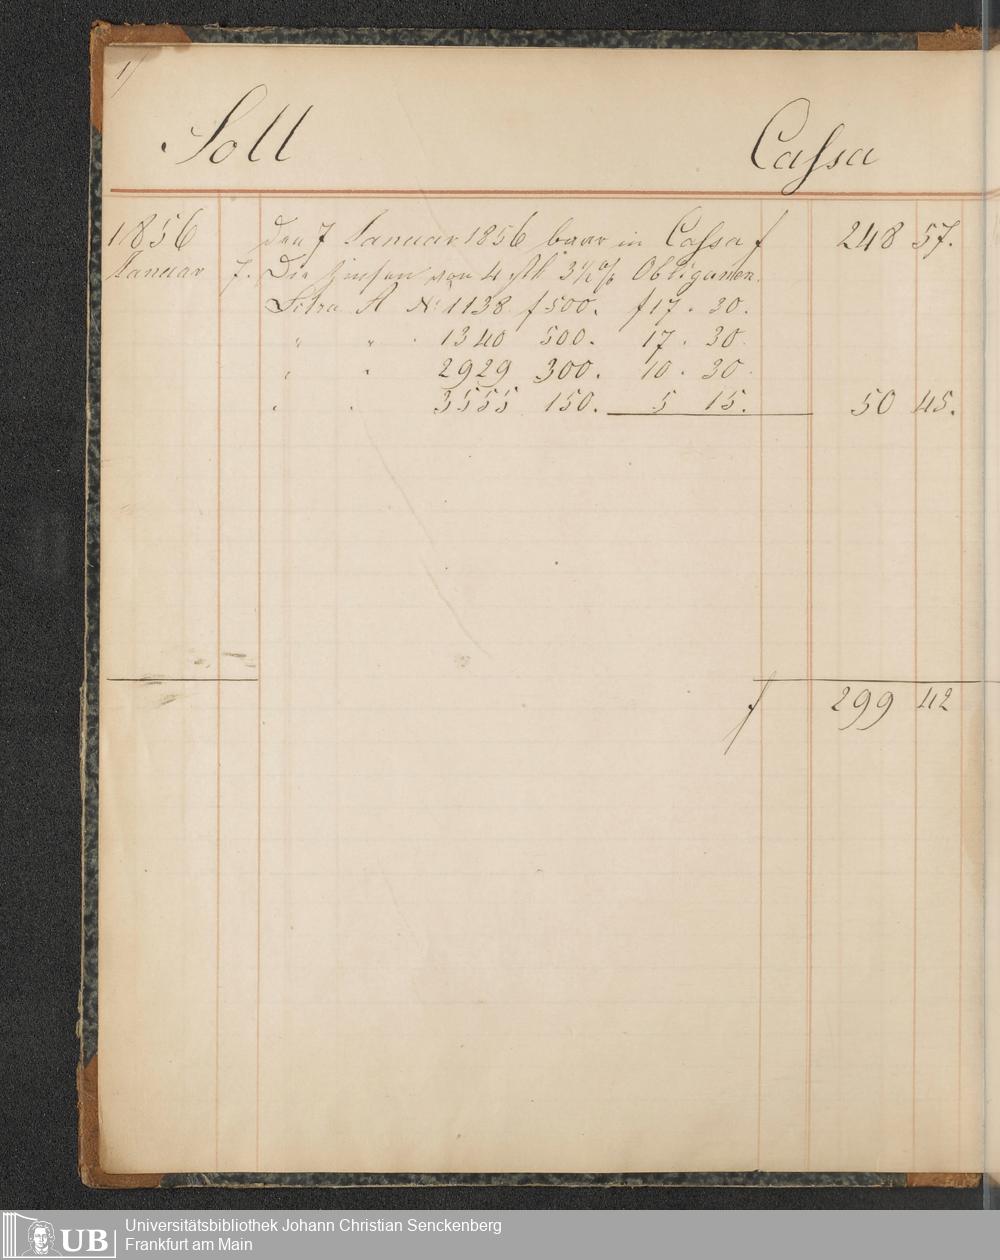 1/
Soll Cassa
1856 den 7 Januar 1856 baar in Cassa f 248 57.
Januar 7. Die Zinsen von 4 3½ % Obligationen.
Litra A No 1138 f 500. f 17. 30.
" " 1340 500. 17. 30.
" " 2929 300. 10. 30.
" " 3555 150. 5 15. 50 45.
f 299 42
UB Universitätsbibliothek Johann Christian Senckenberg
Frankfurt am Main